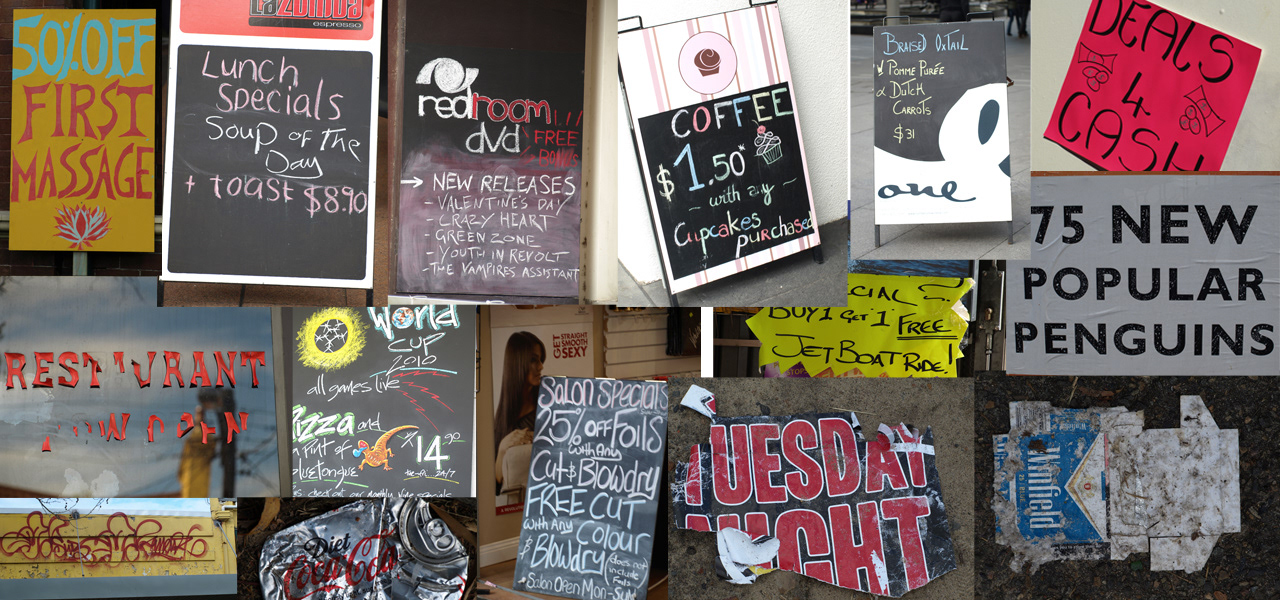 50% OFF
FIRST
MASSAGE
LaZumba
espresso
Lunch
Specials
Soup of the
Day
+ toast $8.90
redroom
dvd
FREE
→ NEW RELEASES
- VALENTINE'S DAY
- CRAZY HEART
- GREEN ZONE
- YOUTH IN REVOLT
- THE VAMPIRES ASSISTANT
COFFEE
$1.50*
- with any -
Cupcakes
purchased
BRAISED OXTAIL
POMME PURÉE
DUTCH
CARROTS
$31
one
DEALS
4
CASH
75 NEW
POPULAR
PENGUINS
CIAL
BUY 1 GET 1 FREE
JET BOAT RIDE!
REST URANT
OW OPEN
World
CUP
2010
all games live
Pizza and
Pint of
bluetongue
$14.90
check out our monthly wine specials
GET STRAIGHT
SMOOTH
SEXY
Salon Specials
25% OFF Foils
with Any
Cut & Blowdry
FREE CUT
with Any
Colour
& Blowdry
does not
include
Foils
Salon Open Mon-Sun
TUESDAY
NIGHT
Winfield
Diet
Coca-Cola